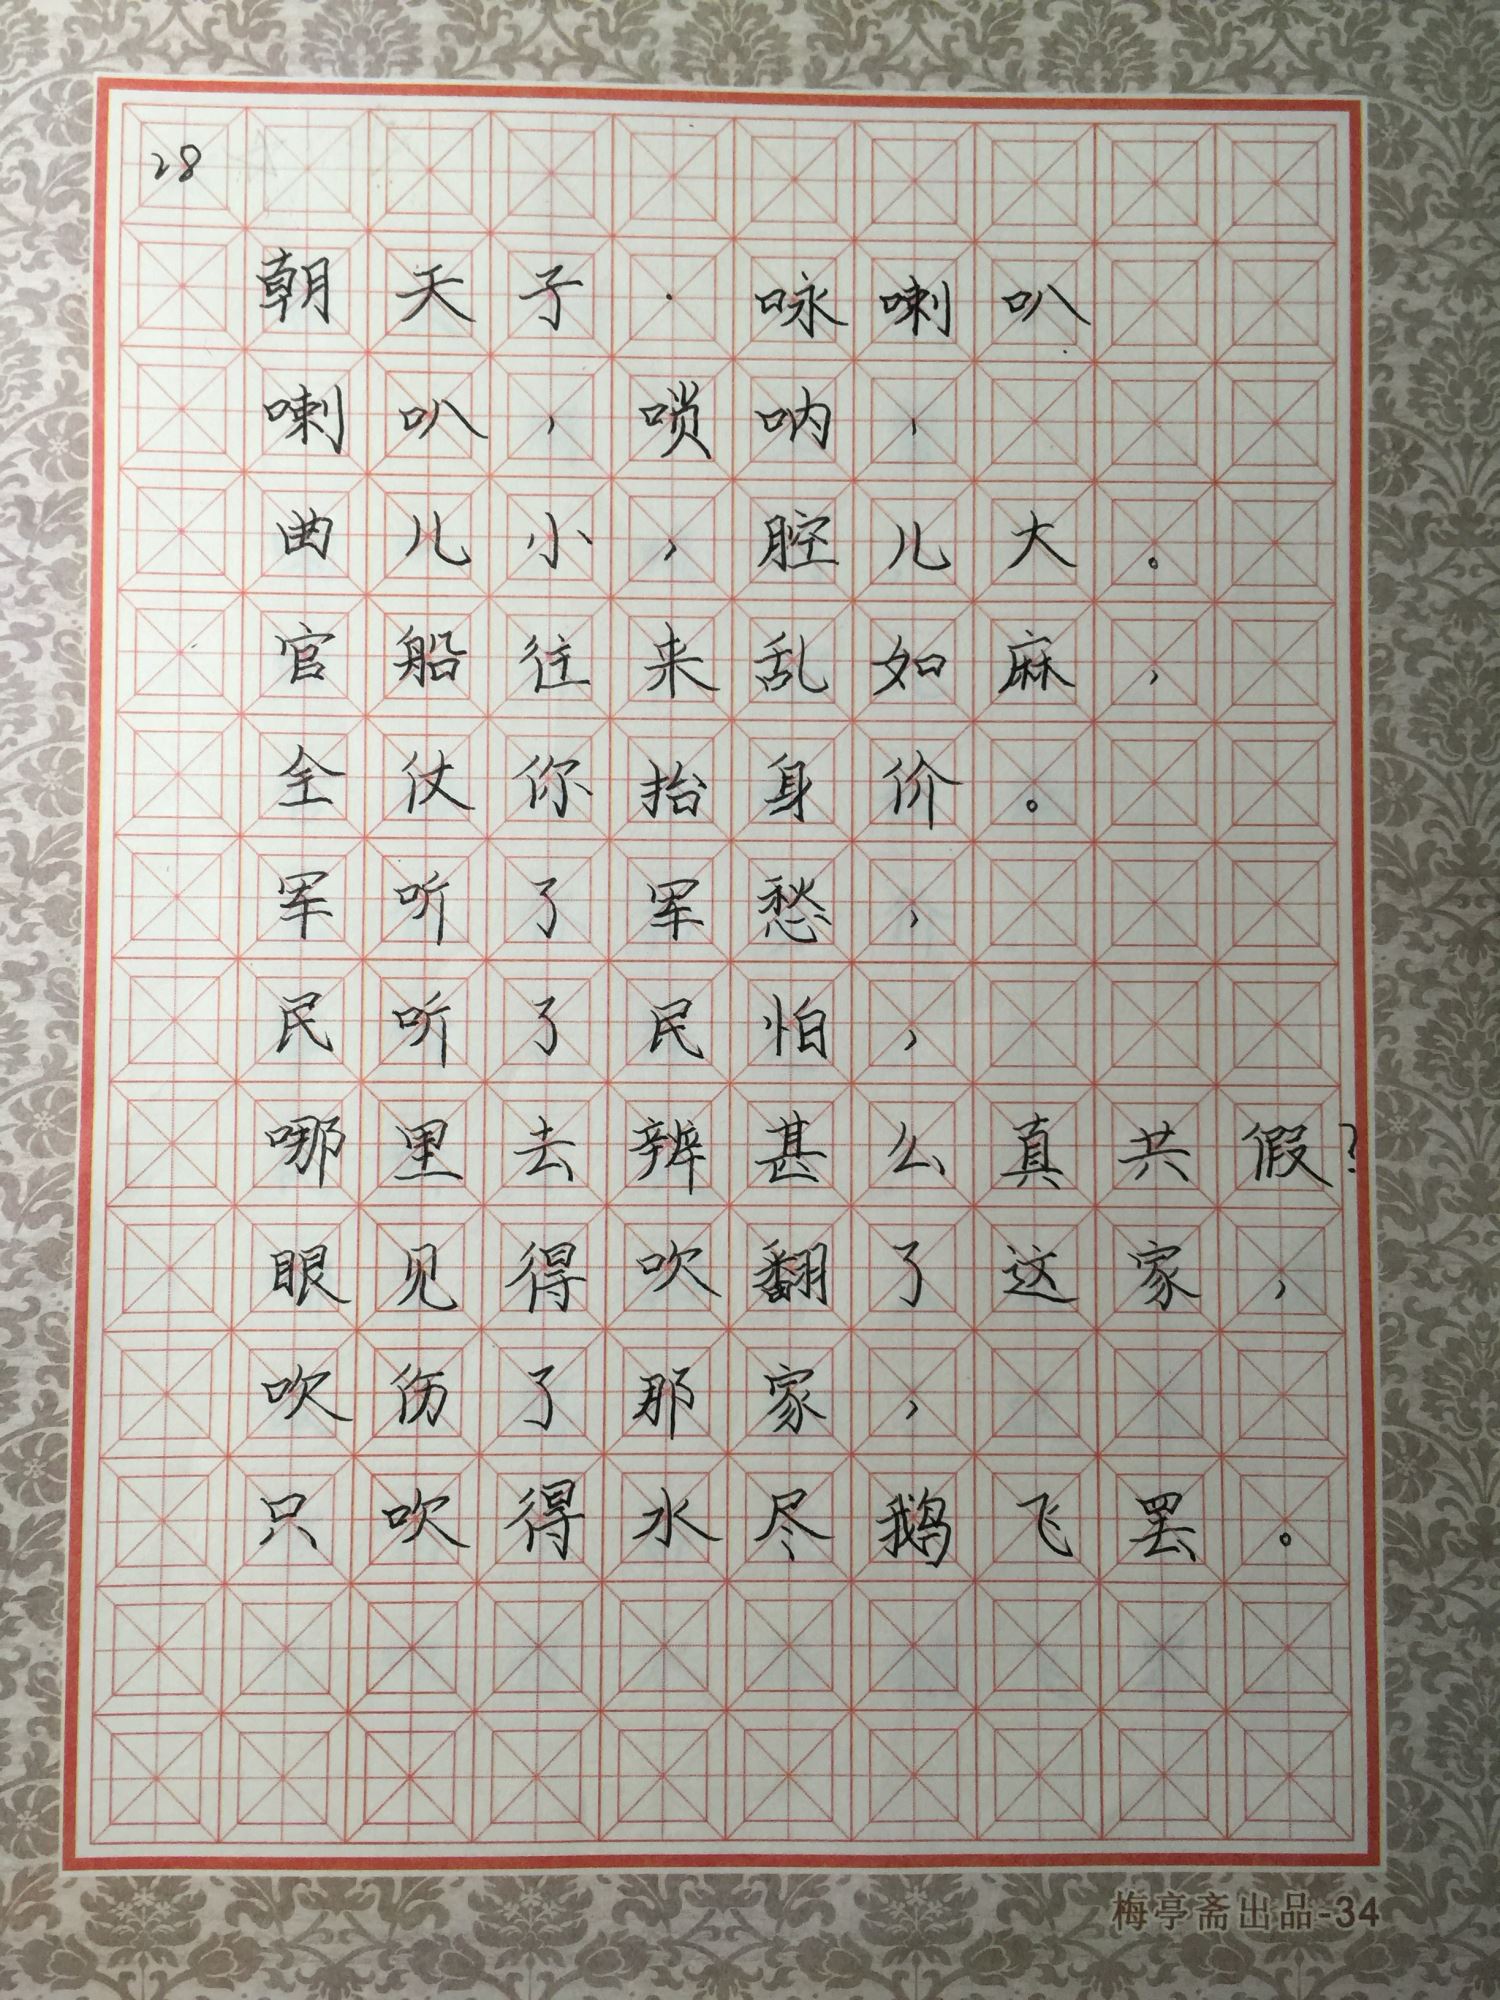 28
朝天子·咏喇叭
喇叭，唢呐，
曲儿小，腔儿大。
官船往来乱如麻，
全仗你抬身价。
军听了军愁，
民听了民怕，
哪里去辨甚么真共假？
眼见得吹翻了这家，
吹伤了那家，
只吹得水尽鹅飞罢。
梅亭斋出品-34